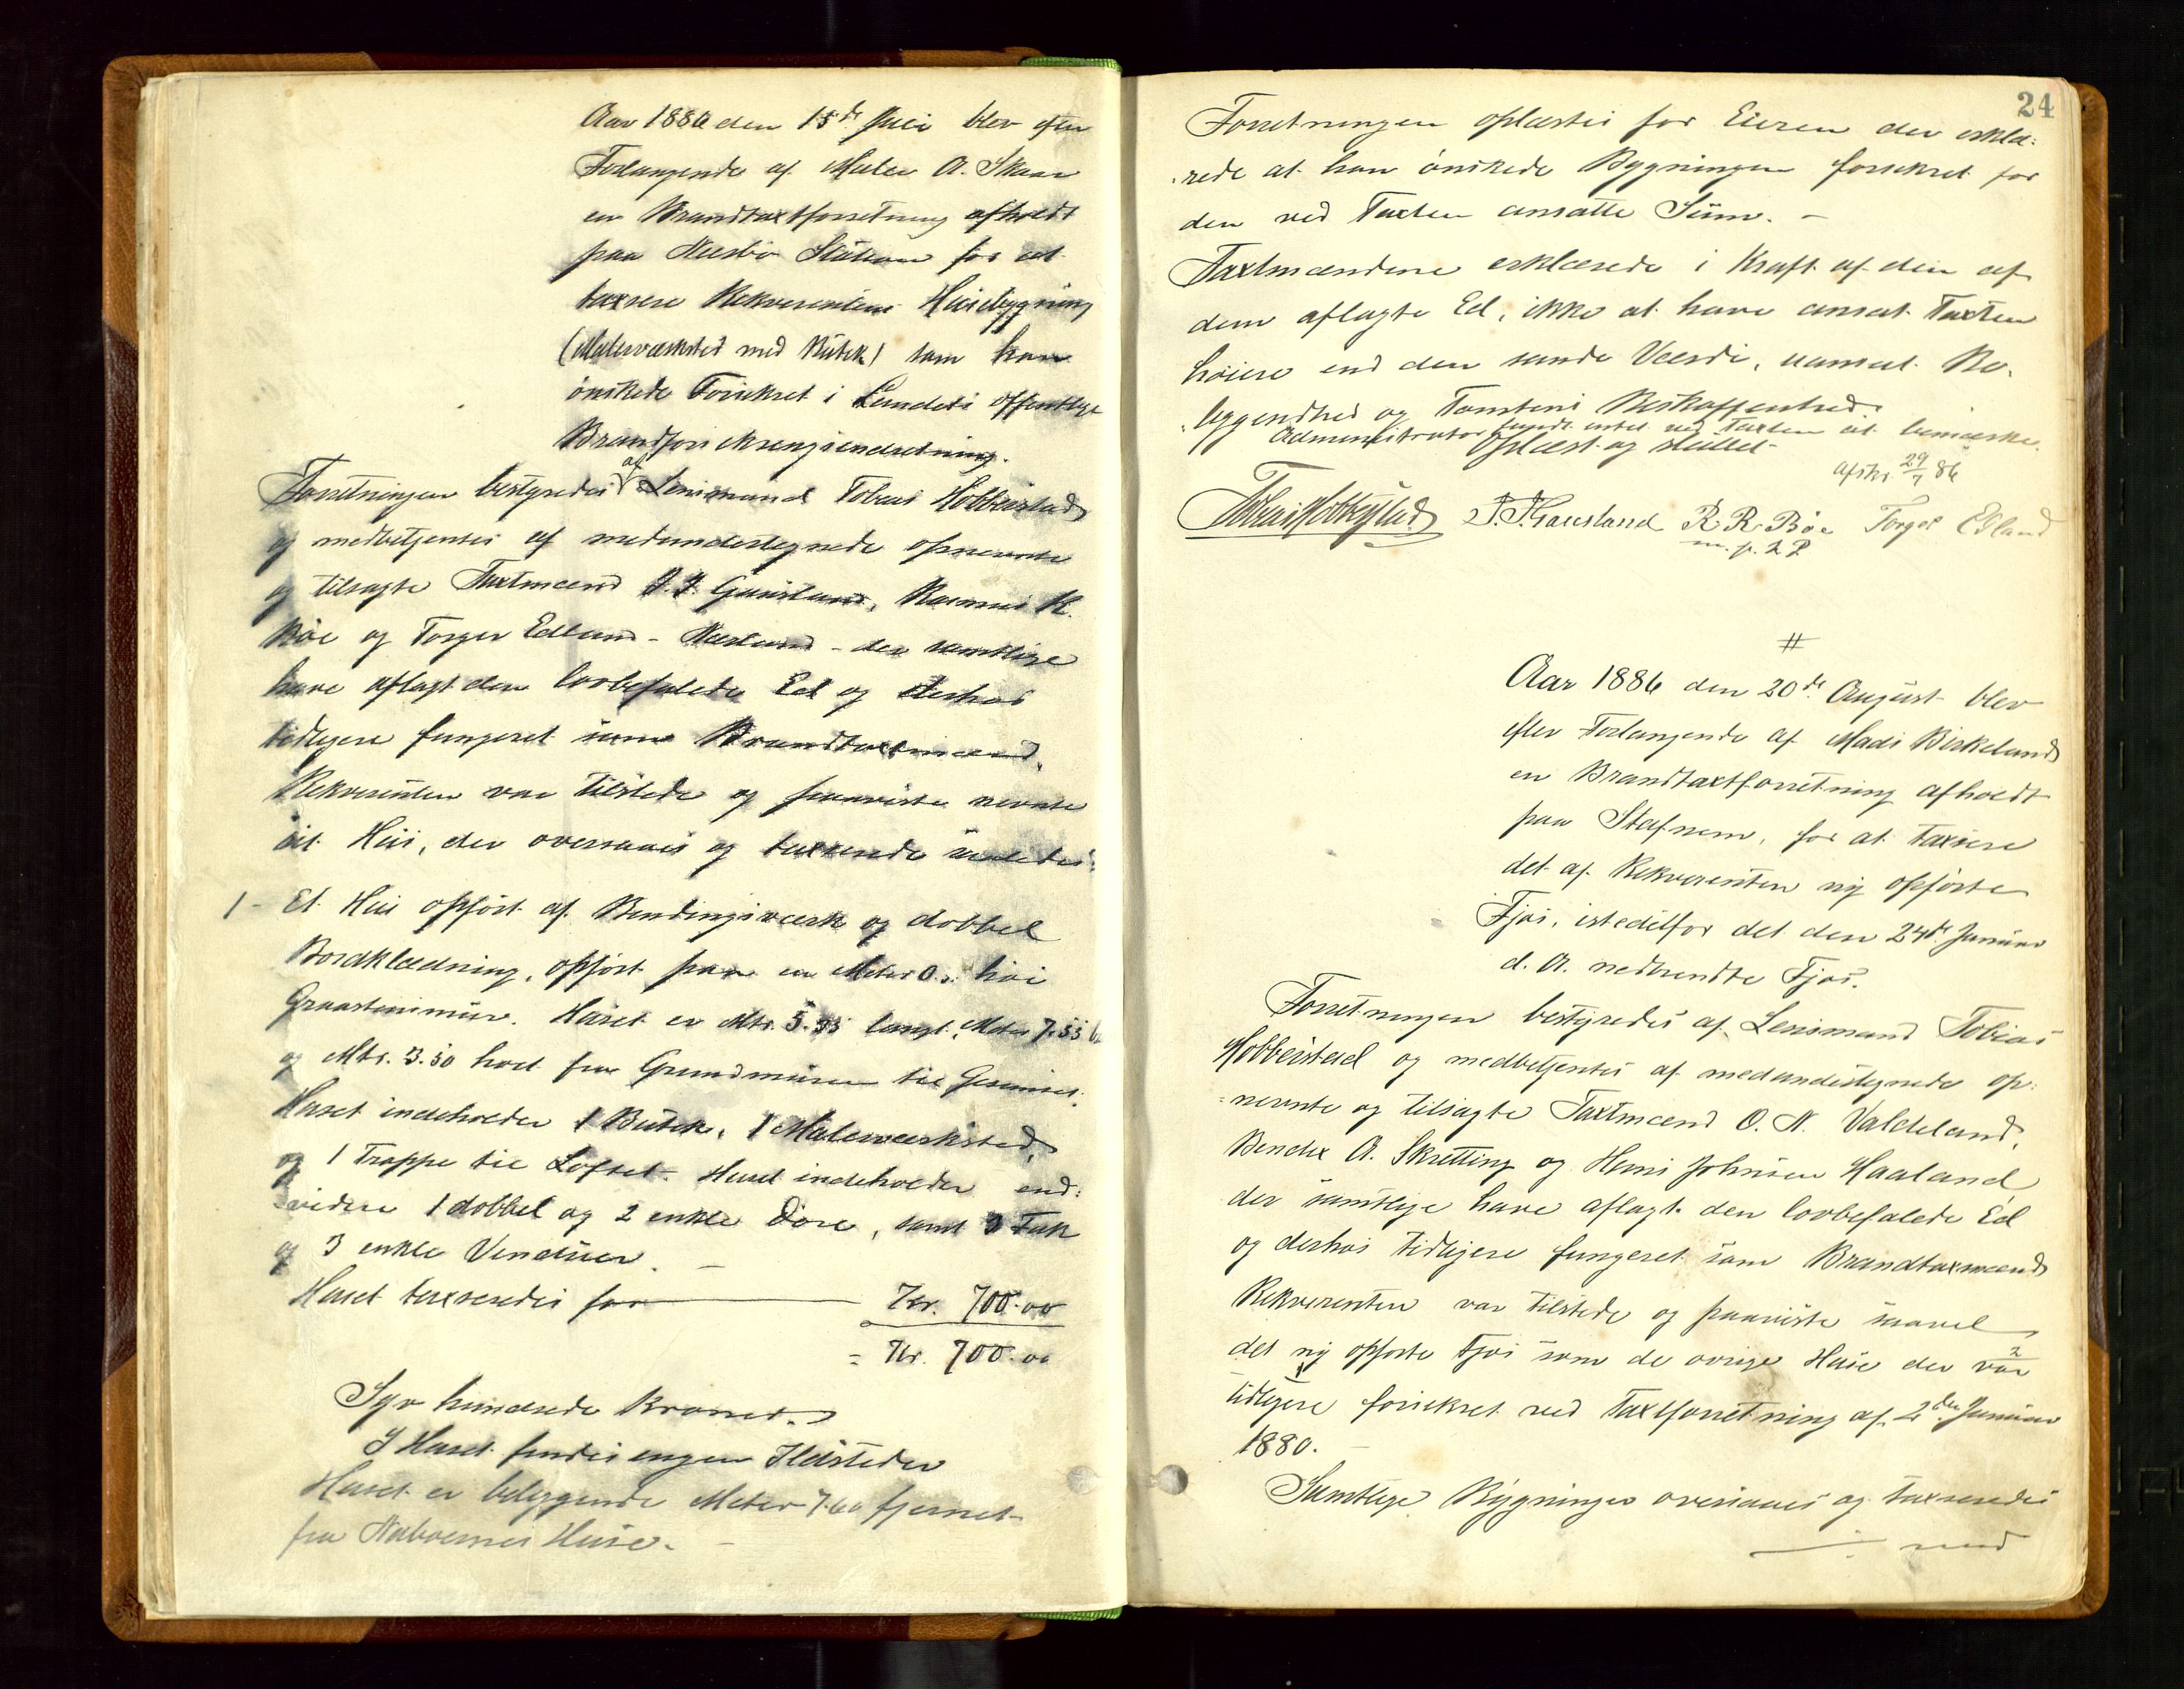 Aar 1886 den 15de Juli blev efter
Forlangende af Maler A. Skaar
en Brandtaxtforretning afholdt
paa Nærbø Station for at
taxere Rekvirentens Huusbygning
(Malerværksted med Butik) som han
ønskede Forsikret i Landets offentlige
Brandforsikrengsindretning.
Forretningen bestyredes af Lensmand Tobias Hobberstad
og medbetjentes af medundertegnede opnævnte
og tilsagte Taxtmænd J. J. Gausland, Rasmus R.
Bøe og Torger Edland - Nærland - der samtlige
have aflagt den lovbefalede Ed og derhos
tidligere fungeret som Brandtaxtmænd.
Rekvirenten var tilstede og paaviste nevnte
sit Huus, der oversaaes og taxerede saaledes:
1 - Et Huus opført af Bindingsværk og dobbel
Bordklædning, opført paa en Meter høi
Graastensmur. Huset er Mtr. 5.55 langt, Meter 7.55
og Mtr. 3.50 høit fra Grundmuren til Gesimsen.
Huset indeholder 1 Butik, 1 Malerværksted,
og 1 Trappe til Loftet. Huset indeholder end:
videre 1 dobbel og 2 enkle Døre, samt 3 Fak
og 3 enkle Vinduer. -
Huset taxeredes for Kr. 700.00
= Kr. 700.00
Syv hundrede Kroner.
I Huset findes ingen Ildsteder
Huset er beliggende Meter 7.60 fjernet
fra Naboernes Huse. -
24
Forretningen oplæstes for Eieren der erklæ:
rede at han ønskede Bygningen forsikret for
den ved Taxten ansatte Sum. -
Taxtmændene erklærede i Kraft af den af
dem aflagte Ed, ikke at have ansat Taxten
høiere end den sande Værdi, uanset Be-
liggenhed og Tomtens Beskaffenhed.
Administrator fandt intet ved Taxten at bemærke.
Oplæst og sluttet
afskr. 29/7 86
Tobias Hobberstad J. J. Gausland R. R. Bøe Torger Edland
m. p. P
#
Aar 1886 den 20de August blev
efter Forlangende af Mads Birkeland
en Brandtaxtforretning afholdt
paa Stafnem, for at taxere
det af Rekvirenten ny opførte
Fjøs, istedetfor det den 24de Januar
d. A. nedbrendte Fjøs.
Forretningen bestyredes af Lensmand Tobias
Hobberstad og medbetjentes af medundertegnede op:
nevnte og tilsagte Taxtmænd O. N. Valdeland,
Bendix A. Skretting og Hans Johnsen Haaland
der samtlige have aflagt den lovbefalede Ed
og derhos tidligere fungeret som Brandtaxmænd
Rekvirenten var tilstede og paaviste saavel
det ny opførte Fjøs som de øvrige Huse der var
tidligere forsikret ved Taxtforretning af 2den Januar
1880. -
Samtlige Bygninger oversaaes og taxeredes
med